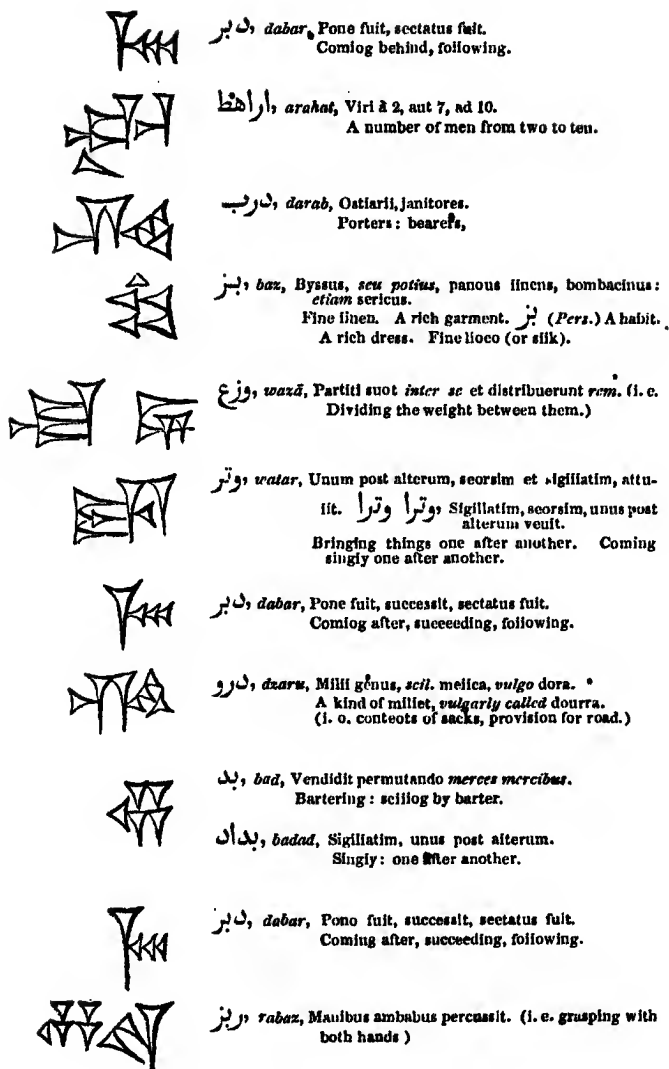 دبر, dabar, Pone fuit, sectatus fuit.
Comiog behind, following.
اراهط, arahat, Viri à 2, aut 7, ad 10.
A number of men from two to ten.
درب, darab, Ostiarii, janitores.
Porters: bearers,
بز, baz, Byssus, seu potius, panous linens, bombacinus:
etiam sericus.
Fine linen. A rich garment. بز (Pers.) A habit.
A rich dress. Fine lioco (or silk).
وزع, wazā, Partiti suot inter se et distribuerunt rem. (i. e.
Dividing the weight between them.)
وتر, watar, Unum post alterum, seorsim et sigillatim, attu-
lit. وترا وترا, Sigillatim, seorsim, unus post
alterum venit.
Bringing things one after another. Coming
singly one after another.
دبر, dabar, Pone fuit, successit, sectatus fuit.
Comiog after, succeeding, following.
درو, dzaru, Milii genus, scil. melica, vulgo dora.
A kind of millet, vulgarly called dourra.
(i. o. conteots of sacks, provision for road.)
بد, bad, Vendidit permutando merces mercibus.
Bartering: sciliog by barter.
بداد, badad, Sigillatim, unus post alterum.
Singly: one after another.
دبر, dabar, Pono fuit, successit, sectatus fuit.
Coming after, succeeding, following.
ربز, rabaz, Manibus ambabus percussit. (i. e. grasping with
both hands)